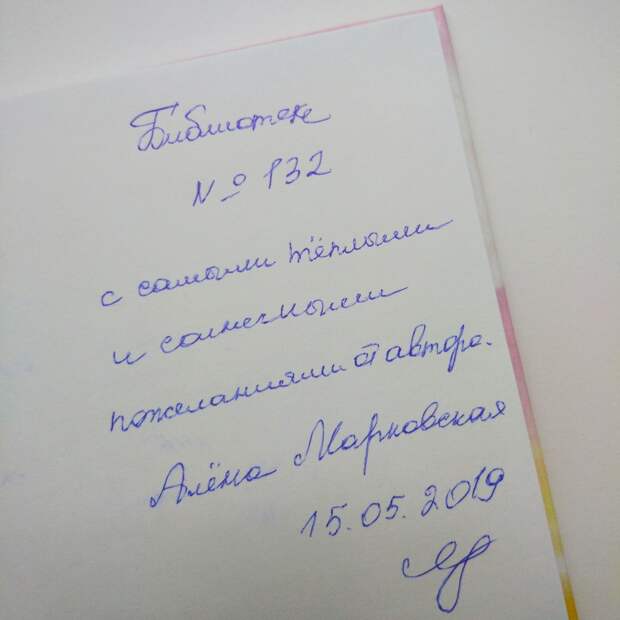 Библиотеке
№ 132
с самыми тёплыми
и солнечными
пожеланиями от автора.
Алёна Марковская
15.05.2019